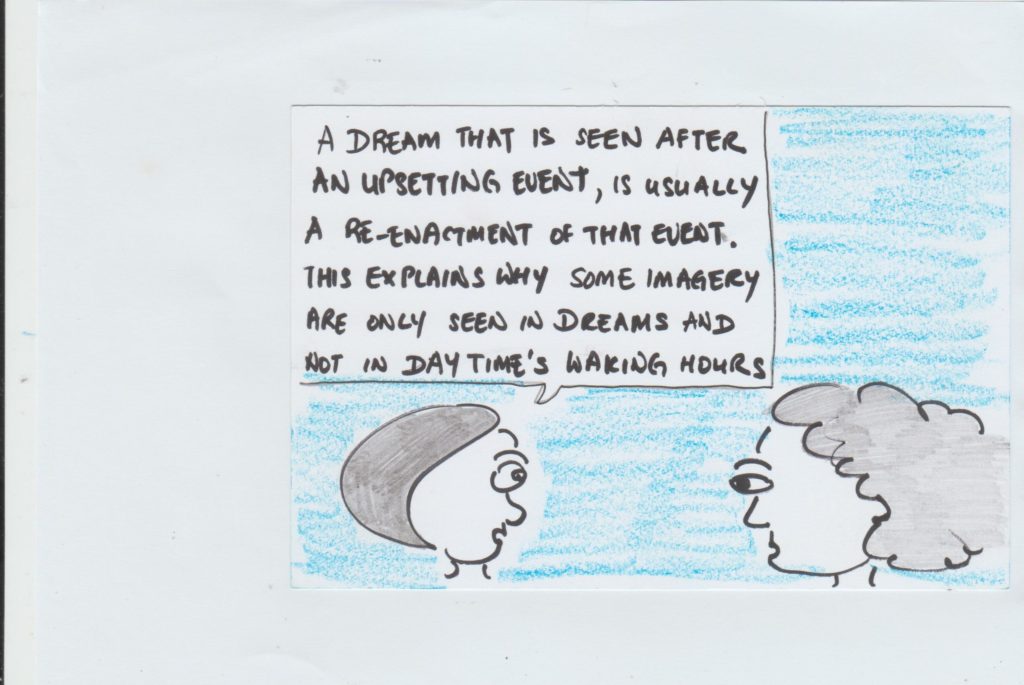 A DREAM THAT IS SEEN AFTER
AN UPSETTING EVENT, IS USUALLY
A RE-ENACTMENT OF THAT EVENT.
THIS EXPLAINS WHY SOME IMAGERY
ARE ONLY SEEN IN DREAMS AND
NOT IN DAY TIME'S WAKING HOURS